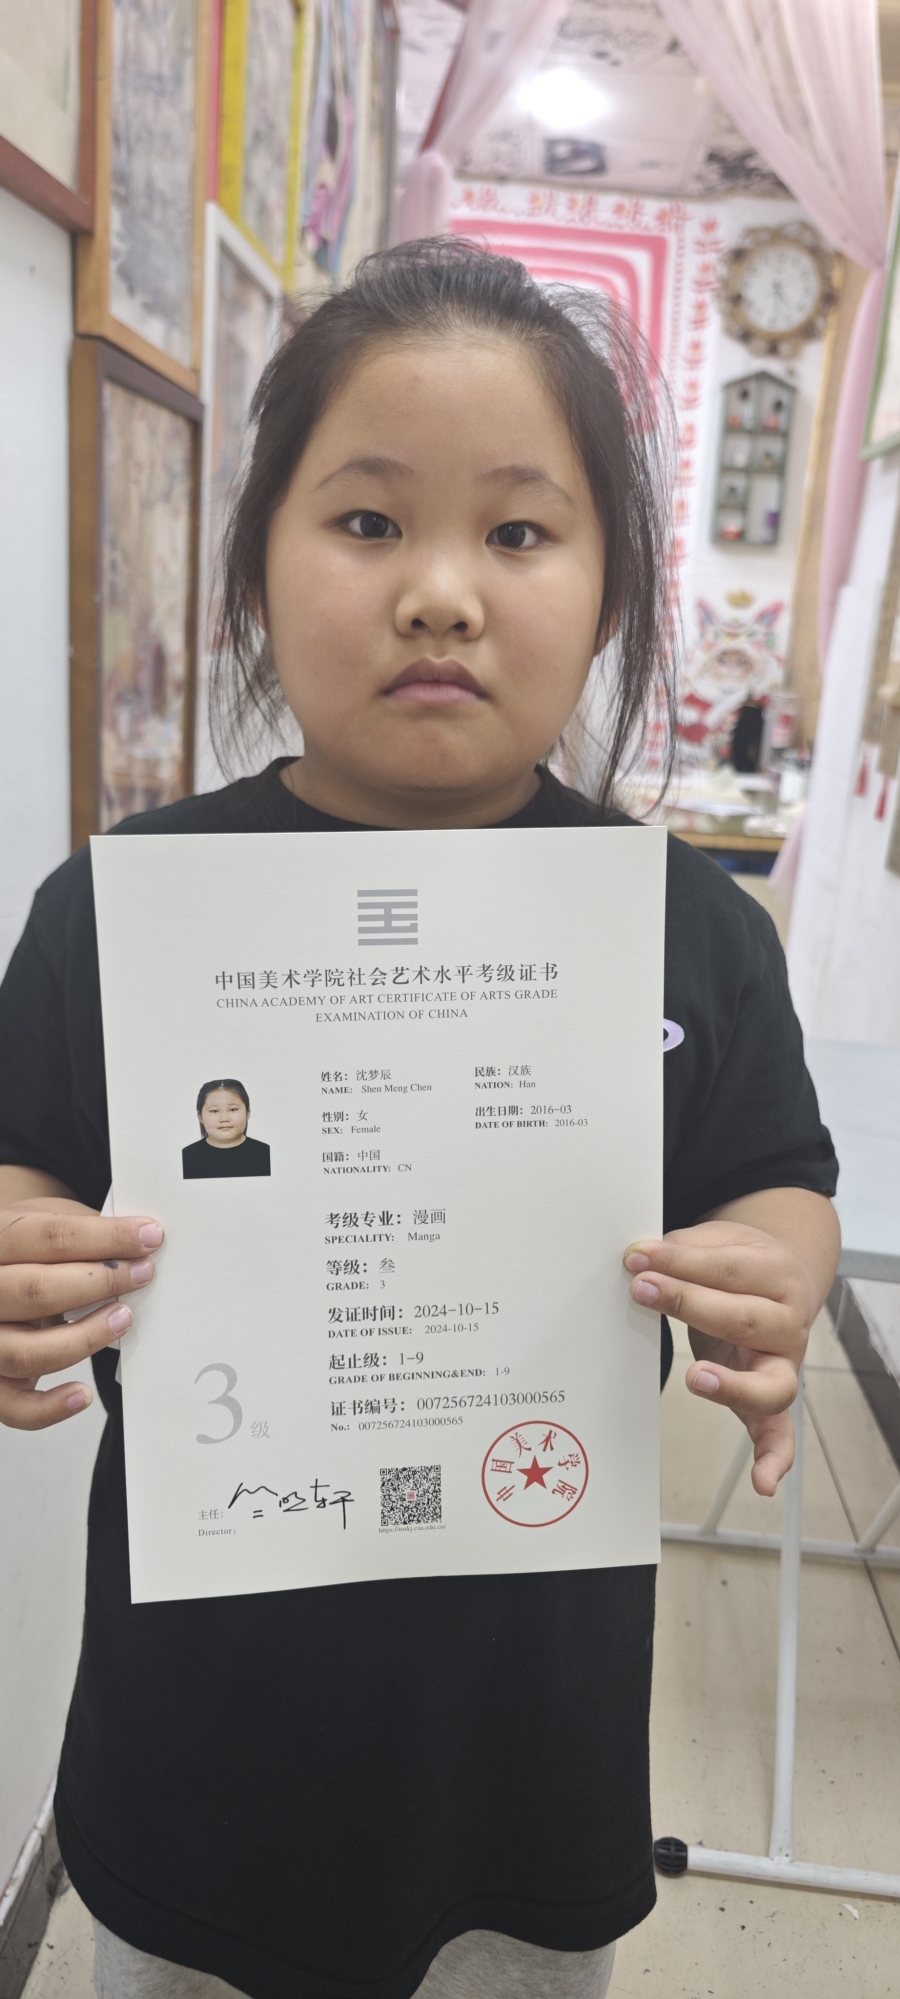 中国美术学院社会艺术水平考级证书
CHINA ACADEMY OF ART CERTIFICATE OF ARTS GRADE
EXAMINATION OF CHINA
姓名：沈梦辰
NAME: Shen Meng Chen
民族：汉族
NATION: Han
性别：女
SEX: Female
出生日期：2016-03
DATE OF BIRTH: 2016-03
国籍：中国
NATIONALITY: CN
考级专业：漫画
SPECIALITY: Manga
等级：叁
GRADE: 3
发证时间：2024-10-15
DATE OF ISSUE: 2024-10-15
起止级：1-9
GRADE OF BEGINNING&END: 1-9
证书编号：007256724103000565
No.: 007256724103000565
3级
主任：
Director:
中国美术学院